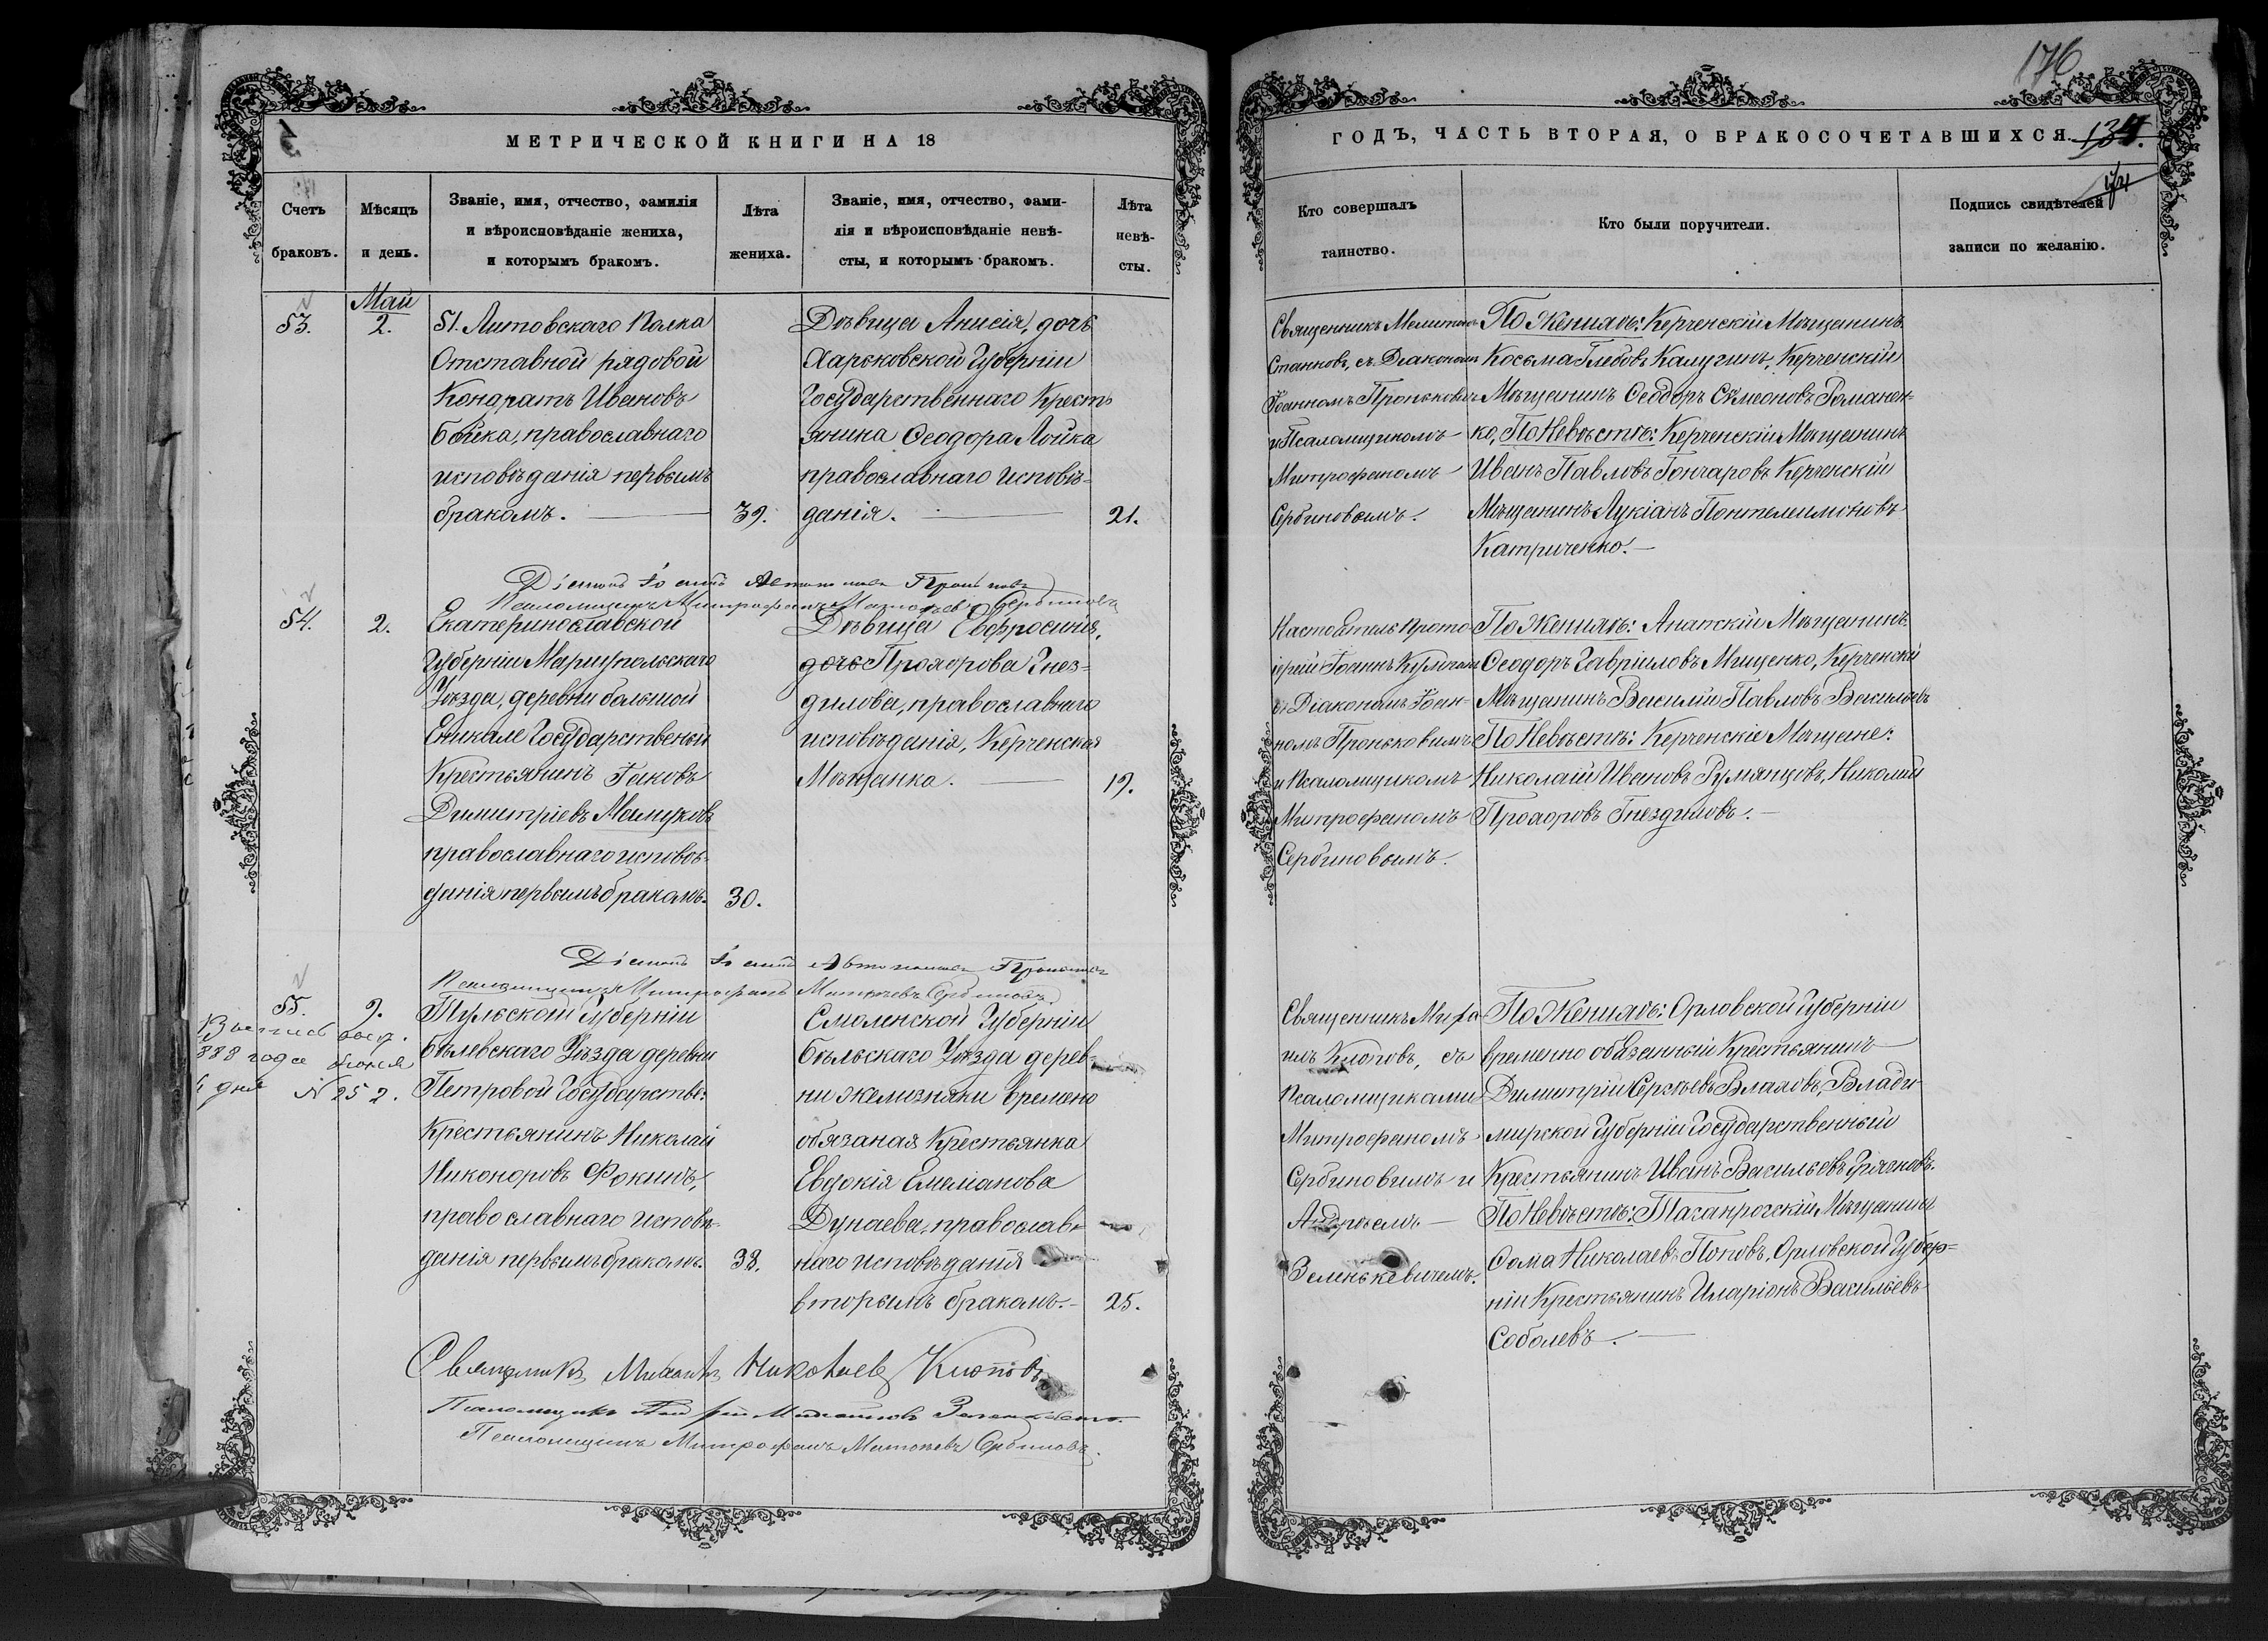 176
МЕТРИЧЕСКОЙ КНИГИ НА 18
ГОДЪ, ЧАСТЬ ВТОРАЯ, О БРАКОСОЧЕТАВШИХСЯ.
134.
Счетъ
браковъ.
Мѣсяцъ
и день.
Званіе, имя, отчество, фамилія
и вѣроисповѣданіе жениха,
и которымъ бракомъ.
Лѣта
жениха.
Званіе, имя, отчество, фами-
лія и вѣроисповѣданіе невѣ-
сты, и которымъ бракомъ.
Лѣта
невѣ-
сты.
Кто совершалъ
таинство.
Кто были поручители.
Подпись свидѣтелей
записи по желанію.
53.
Май
2.
51. Литовскаго Полка
Отставной рядовой
Кондратъ Ивановъ
Бойка, православнаго
исповѣданія первымъ
бракомъ.
39.
Дѣвица Анисія, дочь
Харьковской Губерніи
Государственнаго Кресть
янина Ѳеодора Лойка
православнаго исповѣ-
данія.
21.
Священникъ
Станковъ, съ Діакономъ
Іоанномъ Проньковимъ
и Псаломщикомъ
Митрофаномъ
Сербиновымъ.
По Женихѣ: Керченскій Мѣщанинъ
Косьма Глебовъ Калугинъ, Керченскій
Мѣщанинъ Ѳеодоръ Сѵмеоновъ Романен-
ко, По Невѣстѣ: Керченскій Мѣщанинъ
Иванъ Павловъ Гончаровъ Керченскій
Мѣщанинъ Лукіанъ Понтелеимоновъ
Катриченко.
Псаломщикъ Митрофанъ Матвѣевъ Сербиновъ
54.
2.
Екатеринославской
Губерніи Маріупольскаго
Уѣзда, деревни большой
Еникале Государственый
Крестьянинъ Іаковъ
Димитріевъ Мамуковъ
православнаго исповѣ-
данія первымъ бракомъ.
30.
Дѣвица Евфросинія,
дочь Прохорова Гнез-
дилова, православнаго
исповѣданія, Керченская
Мѣщанка.
19.
Настоятель Прото
іерей Іоаннъ
съ Діакономъ Іоан-
номъ Проньковимъ
и Псаломщикомъ
Митрофаномъ
Сербиновымъ.
По Женихѣ: Анапскій Мѣщанинъ
Ѳеодоръ Гавріиловъ Мищенко, Керченскій
Мѣщанинъ Василій Павловъ Васильевъ
По Невѣстѣ: Керченскіе Мѣщане:
Николай Ивановъ Румянцовъ, Николай
Прохоровъ Гнездиловъ.
Псаломщикъ Митрофанъ Матвѣевъ Сербиновъ.
55.
9.
888 года
дня N 252.
Тульской Губерніи
бѣлевскаго Уѣзда деревни
Петровой Государстве:
Крестьянинъ Николай
Никоноровъ Фокинъ,
православнаго исповѣ-
данія первымъ бракомъ.
38.
Смоленской Губерніи
бѣльскаго Уѣзда дерев-
ни Железняки времено
обязаная Крестьянка
Евдокія Емеліанова
Дунаева, православ-
наго исповѣданія
вторымъ бракомъ.
25.
Священникъ Миха
илъ Клоповъ, съ
Псаломщиками
Митрофаномъ
Сербиновимъ и
Андреемъ
Зеленькевичемъ.
По Женихѣ: Орловской Губерніи
временно обязенный Крестьянинъ
Димитрій Сергѣевъ Влаховъ, Влади-
мирской Губерніи Государственный
Крестьянинъ Иванъ Васильевъ Грязновъ.
По Невѣстѣ: Таганрогскій Мѣщанинъ
Ѳома Николаевъ Поповъ, Орловской Губер-
ніи Крестьянинъ Иларіонъ Васильевъ
Соболевъ.
Священникъ Михаилъ Николаевъ Клоповъ
Псаломщикъ Андрей Михайловъ
Псаломщикъ Митрофанъ Матвѣевъ Сербиновъ.